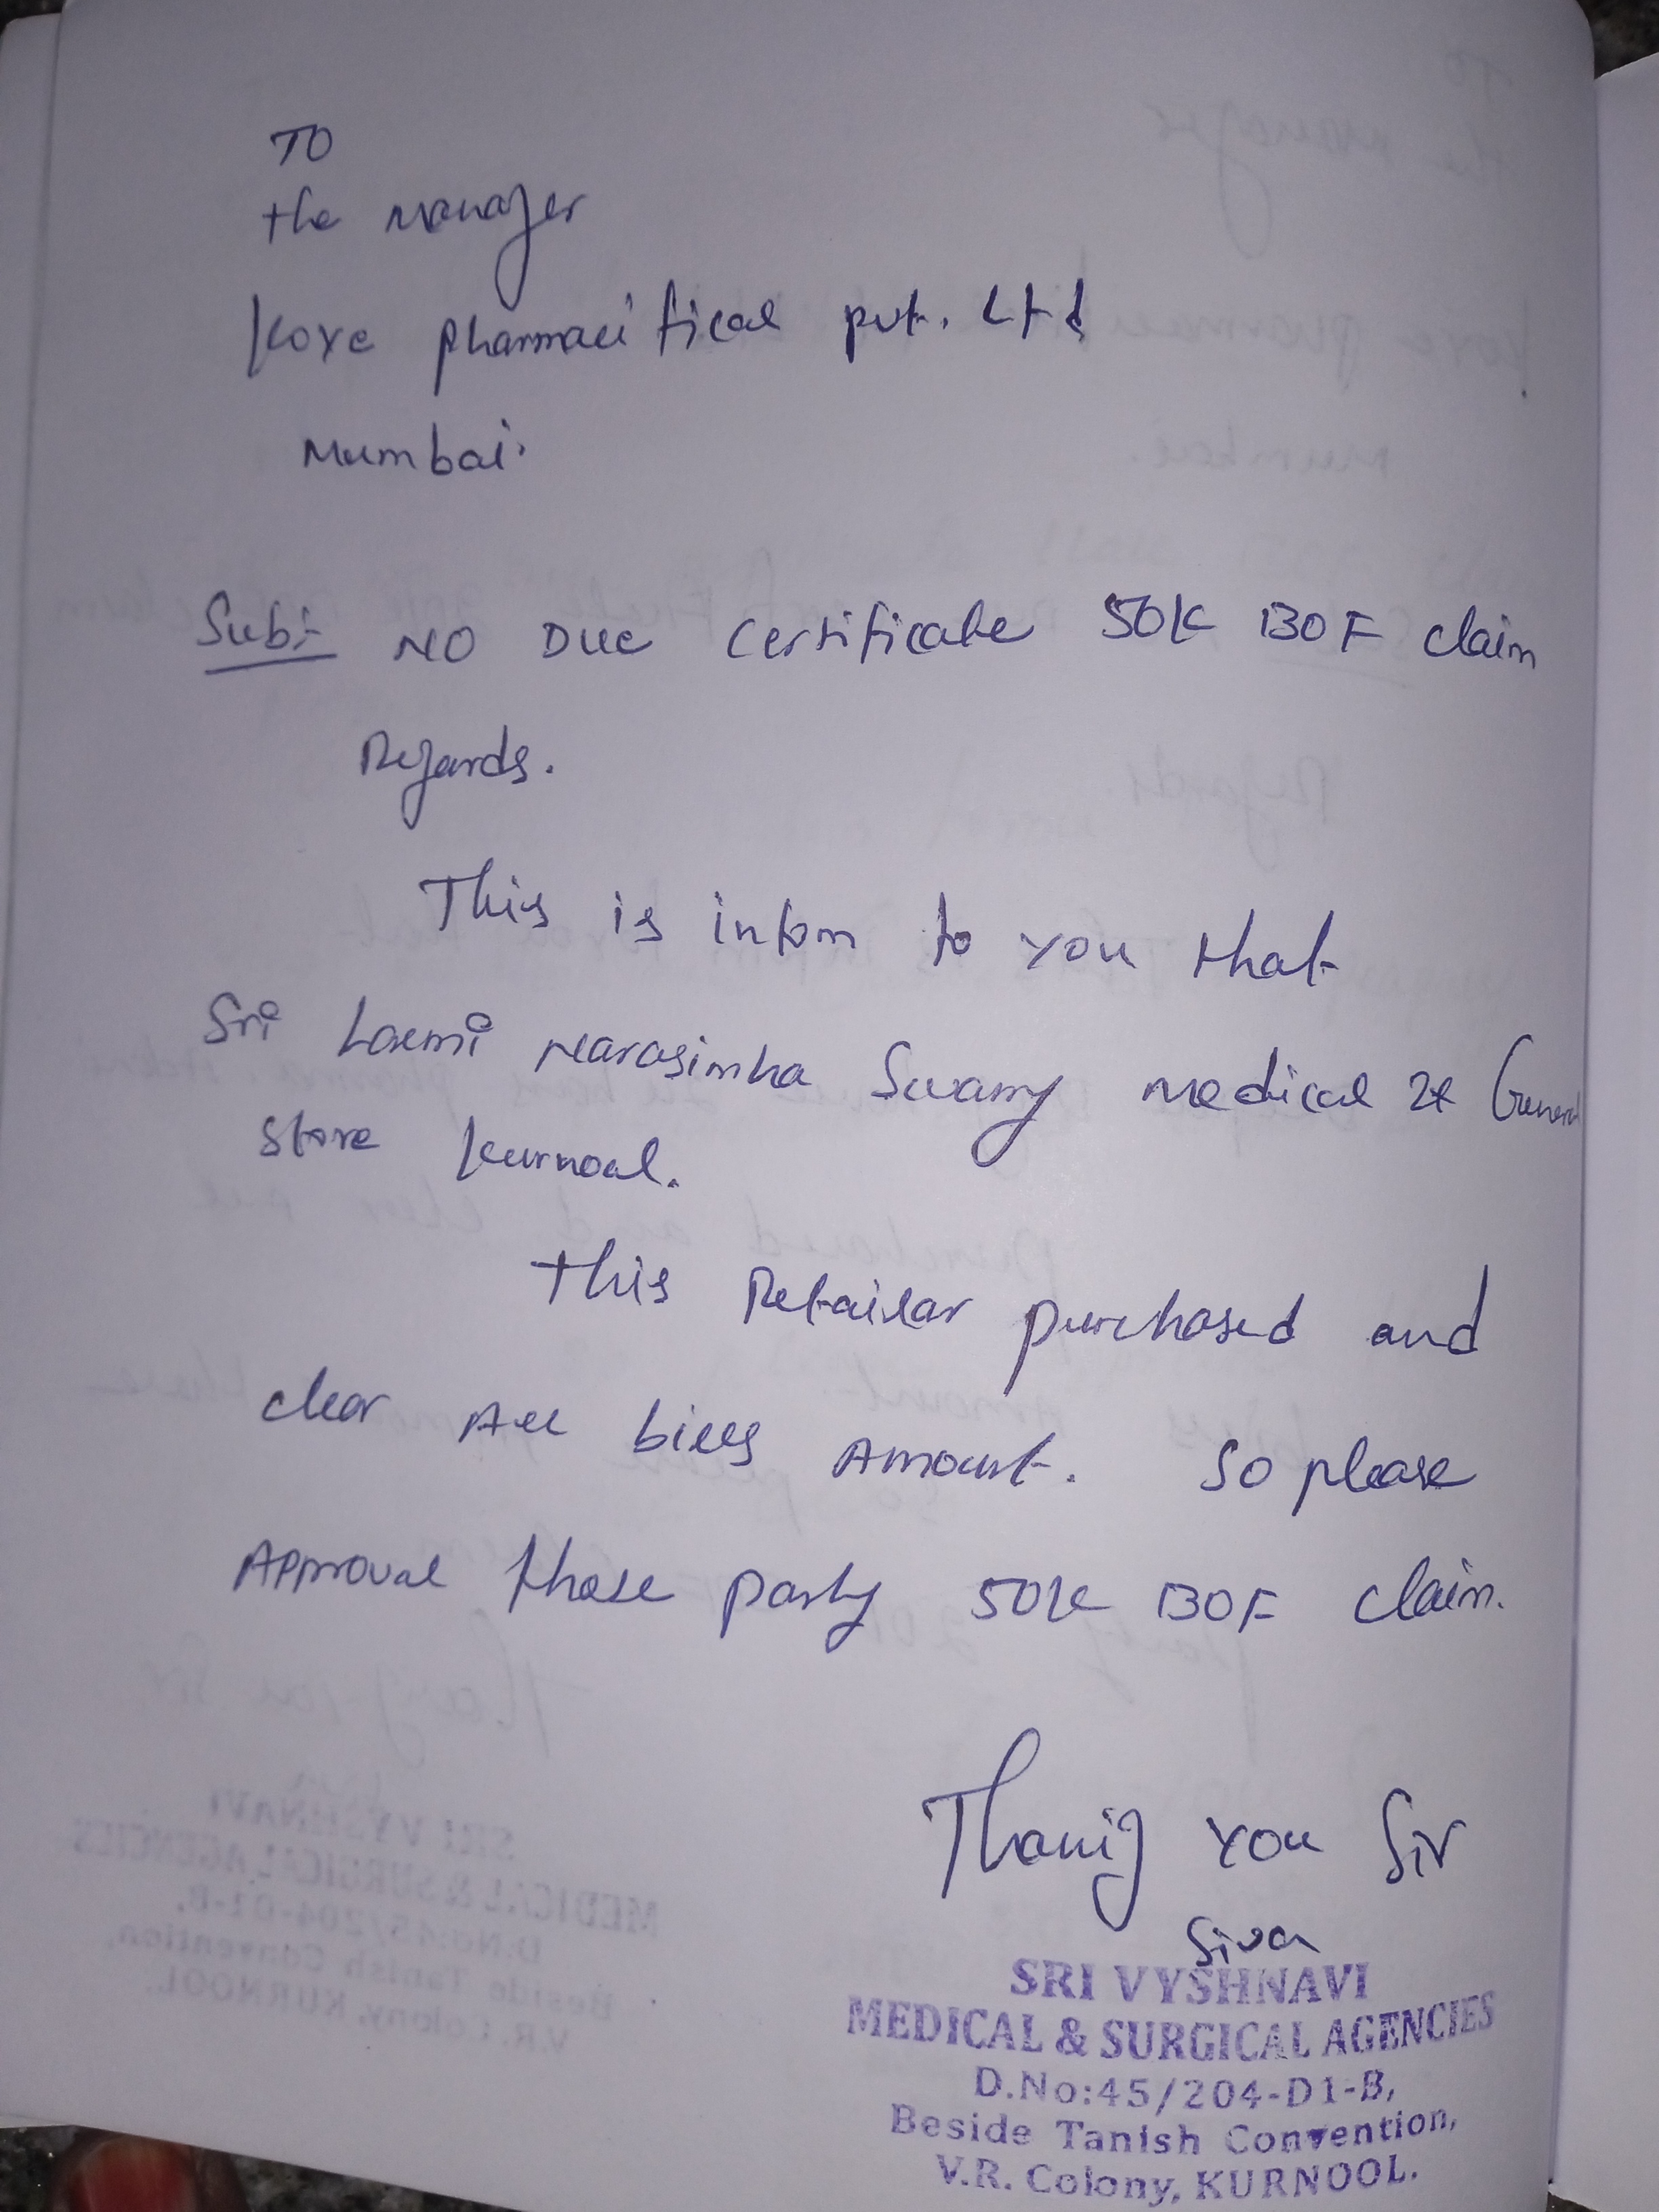 TO
the manager
Koye pharmacifical pvt. Ltd
Mumbai.
Sub:- NO DUE Certificate 50K BOF claim
Regards.
This is inform to you that
Sri Laxmi Narasimha Swamy medical & General
Store Kurnool.
This Retailar purchased and
clear All bills Amount. So please
Approval these party 50K BOF claim.
Thank you Sir
Siva
SRI VYSHNAVI
MEDICAL & SURGICAL AGENCIES
D.No:45/204-D1-B,
Beside Tanish Convention,
V.R. Colony, KURNOOL.